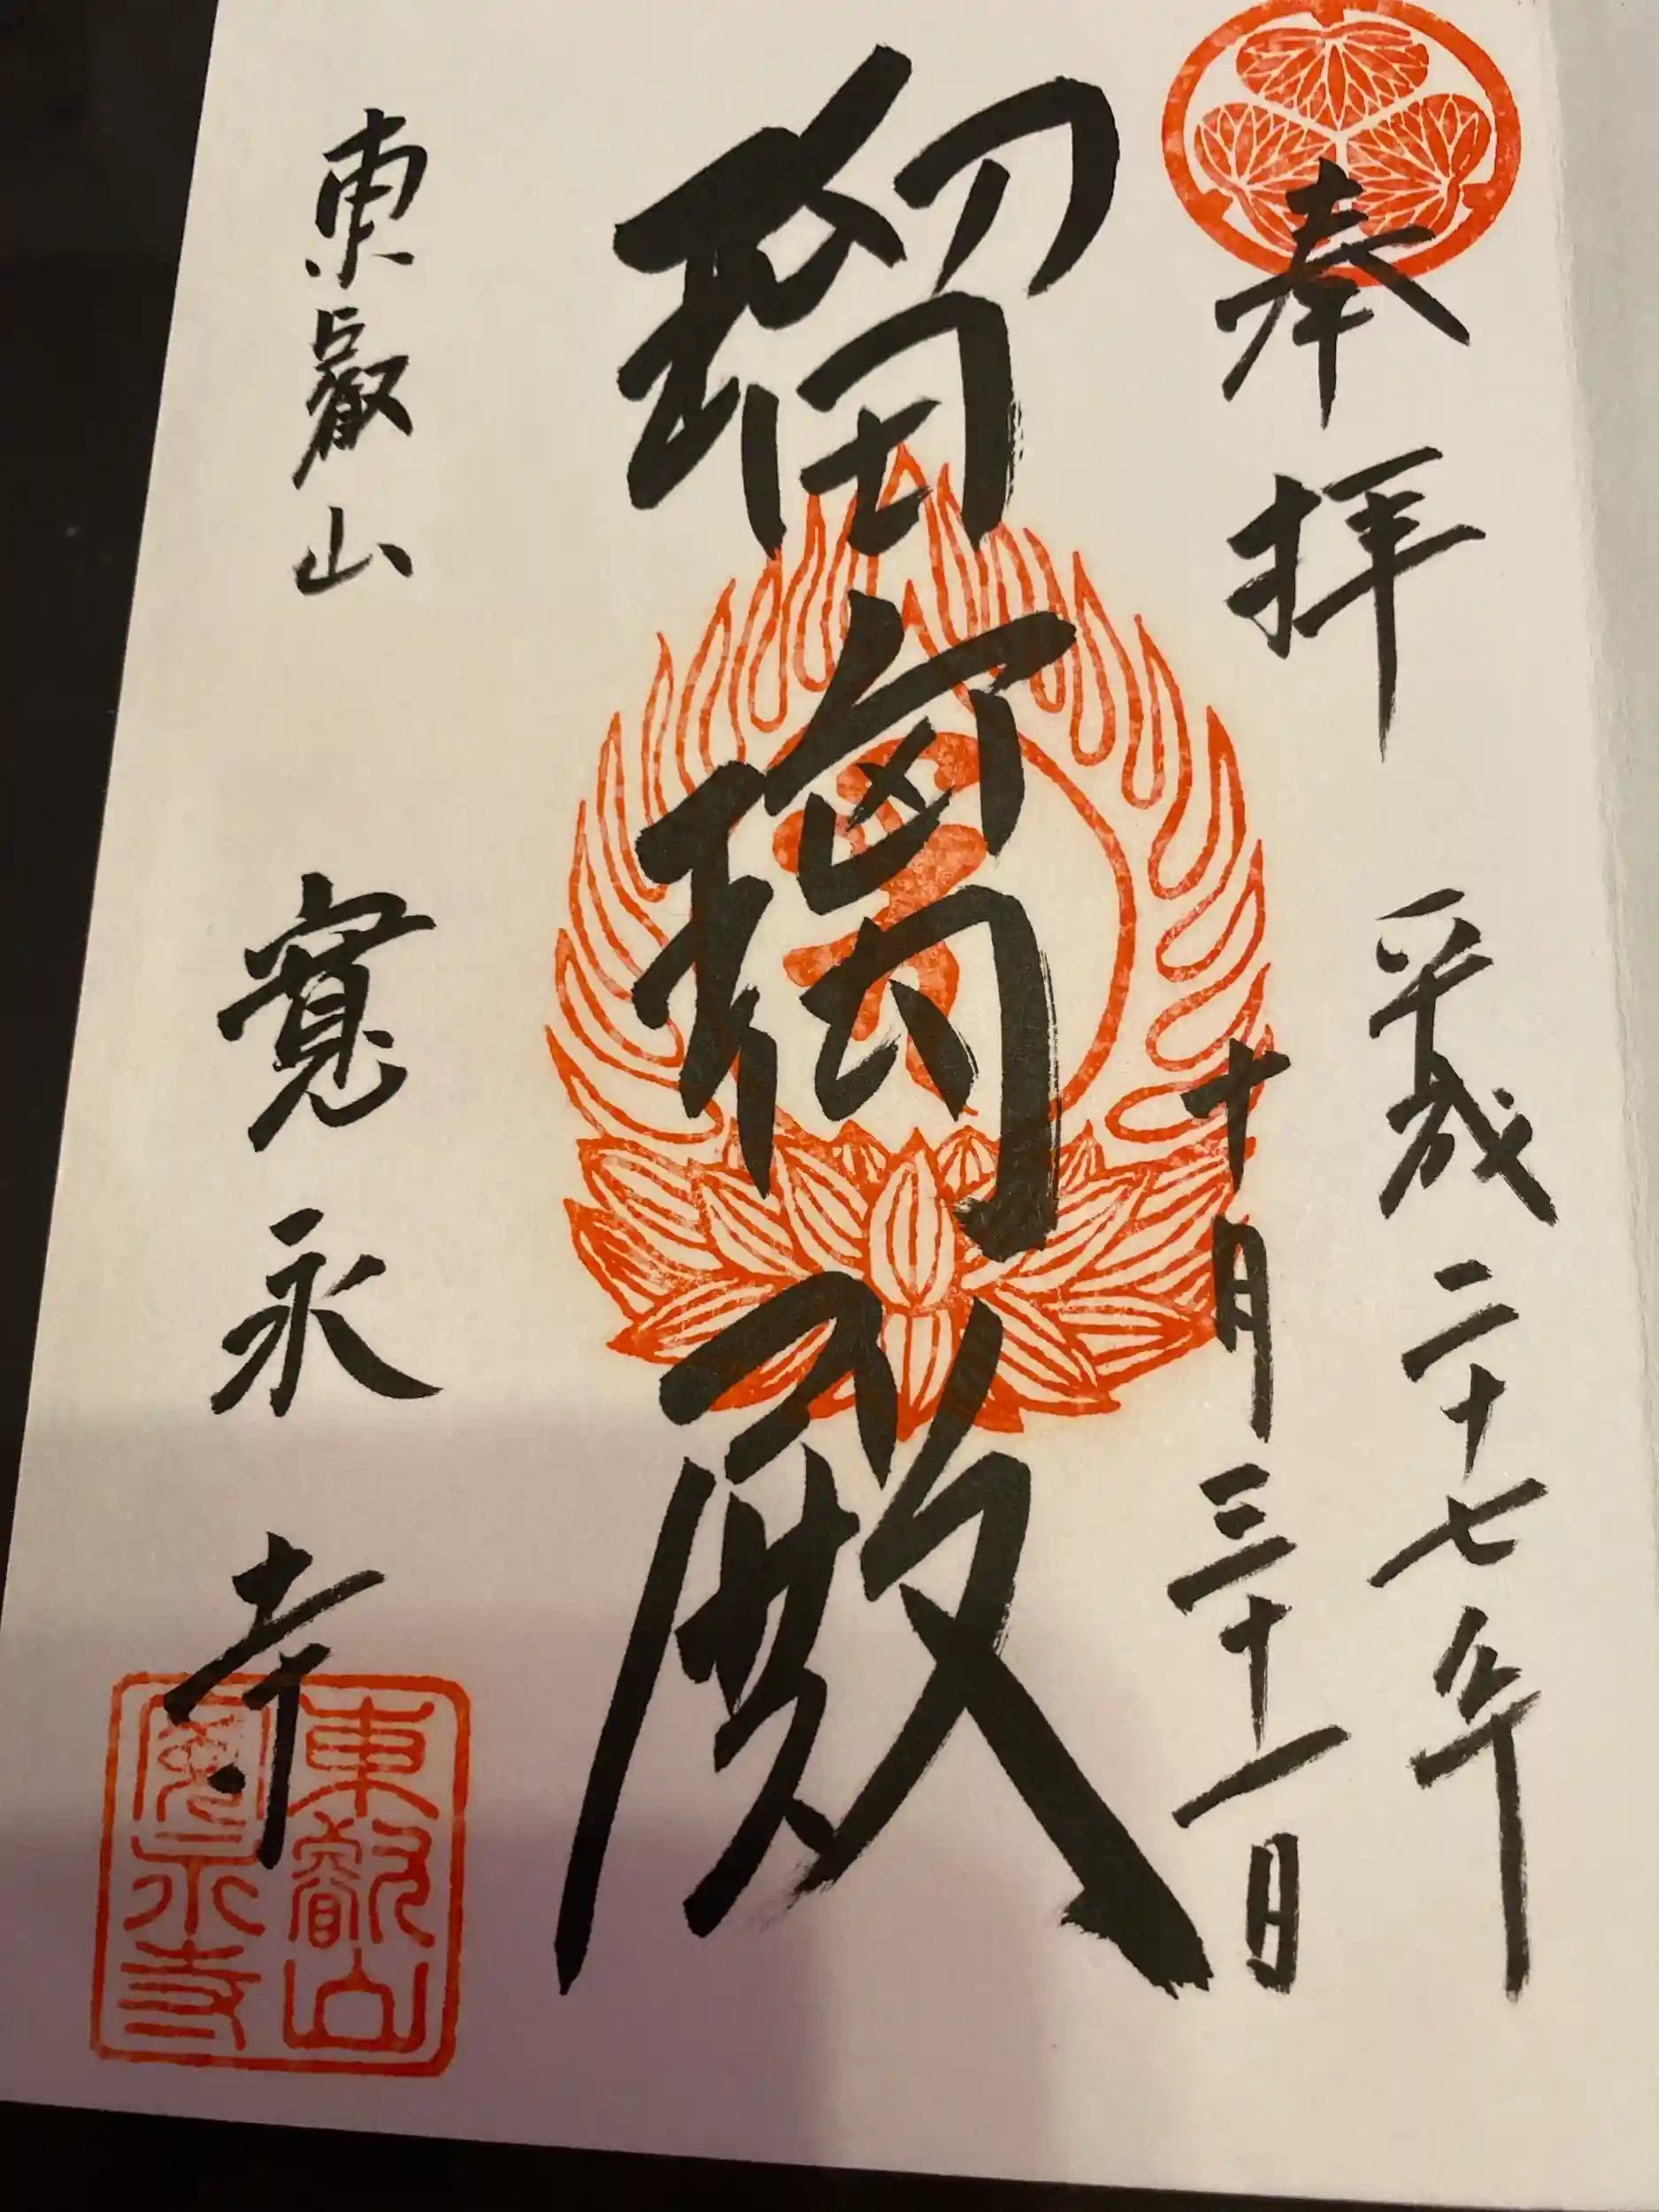 奉拝
平成二十七年
十月三十一日
瑠璃殿
東叡山 寛永寺
東叡山
寛永寺